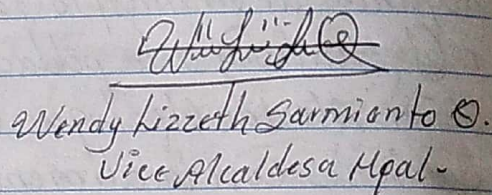 Wendy Lizzeth Sarmianto O.
Vice Alcaldesa Mpal-